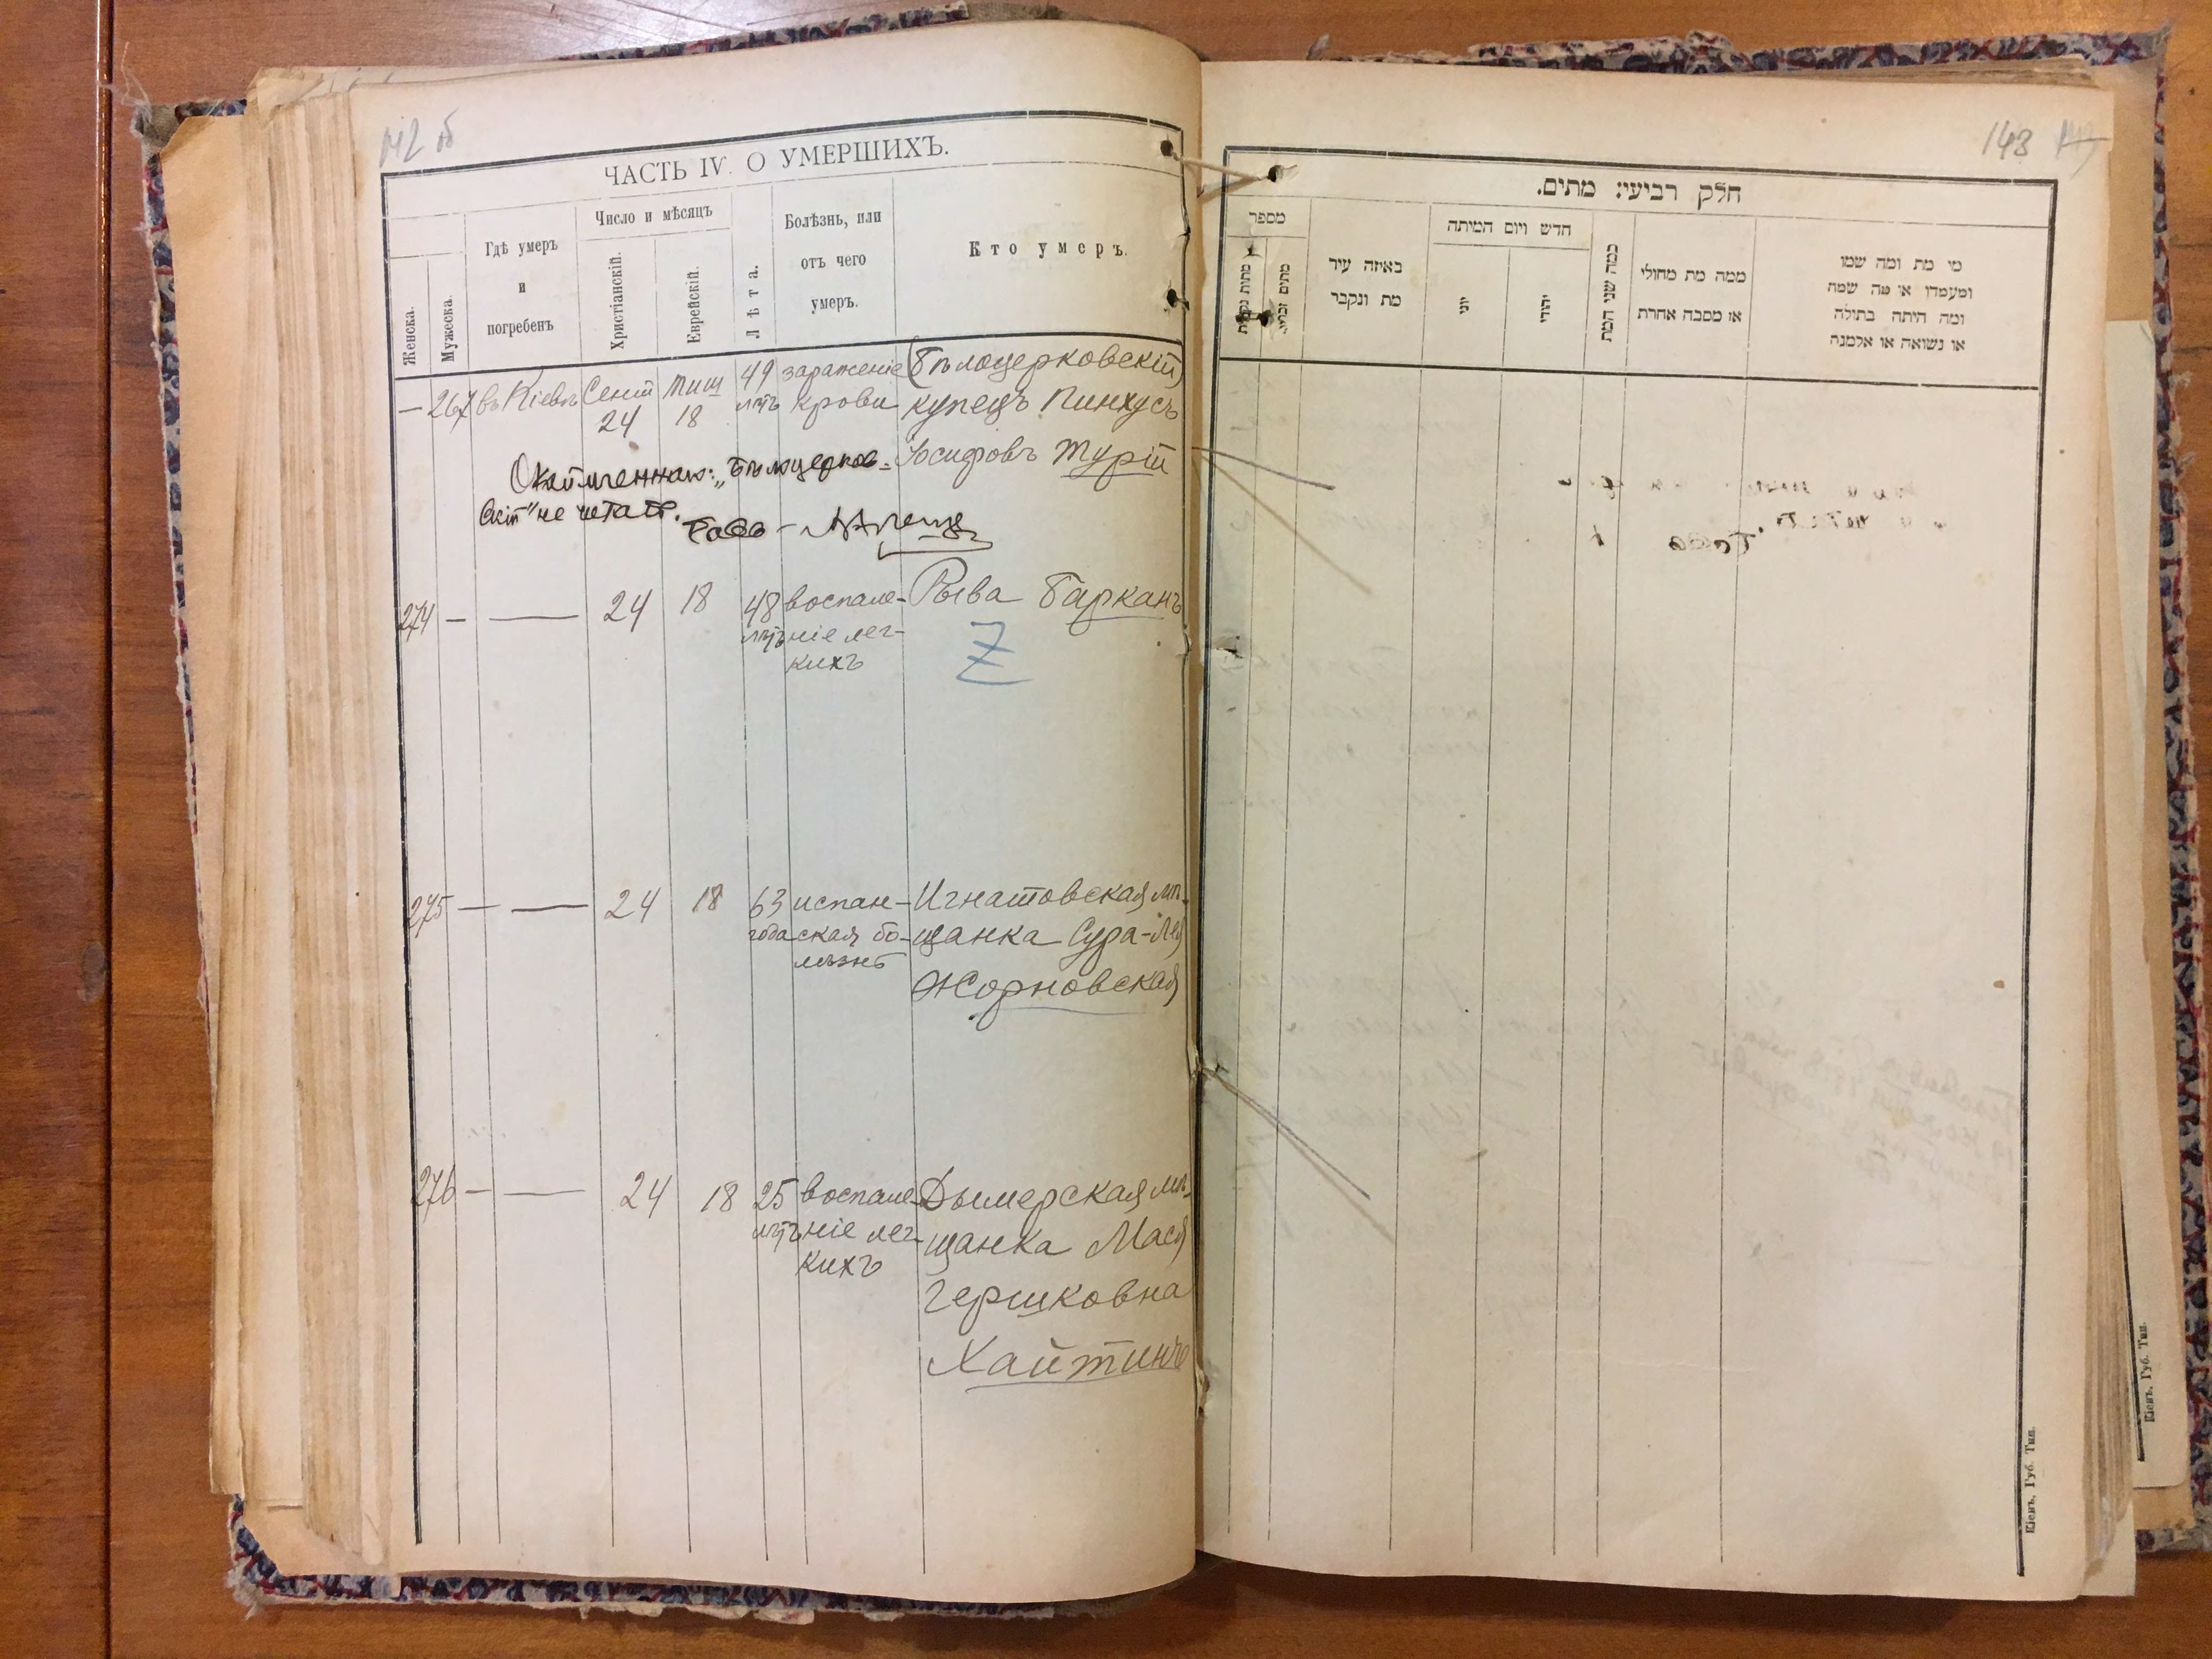 142 об
ЧАСТЬ IV. О УМЕРШИХЪ.
Женска.
Мужеска.
Гдѣ умеръ
и
погребенъ
Число и мѣсяцъ
Христіанскій.
Еврейскій.
Лѣта.
Болѣзнь, или
отъ чего
умеръ.
Кто умеръ.
— 267 въ Кіевѣ Сент Тиш 49 зараженіе (Бѣлоцерковскій)
24 18 лѣтъ крови купецъ Пинхусъ
Іосифовъ Турій
Окаймленному: „Бѣлоцерков-
скій" не читать.
274 — — 24 18 48 воспале- Рыва Барканъ
лѣтъ ніе лег-
кихъ
275 — — 24 18 63 испан- Игнатовская мѣ-
года ская бо- щанка Сура-Лея
лѣзнь Жорновская
276 — — 24 18 25 воспале- Дымерская мѣ-
лѣтъ ніе лег- щанка Мася
кихъ Гершковна
Хайтинъ
143
חלק רביעי: מתים.
מספר
מתים זכרים.
באיזה עיר
מת ונקבר
חדש ויום המיתה
יוני
יהודי
כמה שני המת
ממה מת מחולי
או מסבה אחרת
מי מת ומה שמו
ומעמדו או מה שמה
ומה היתה בתולה
או נשואה או אלמנה
Кіевъ. Губ. Тип.
Кіевъ. Губ. Тип.